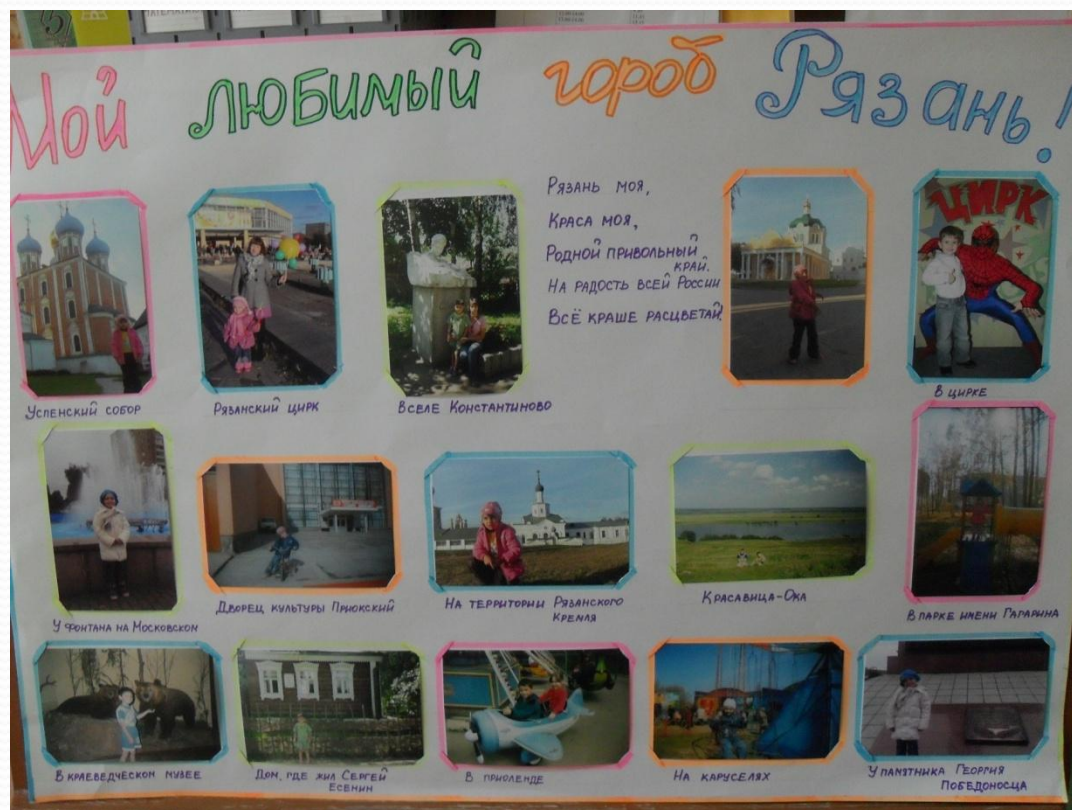 Мой любимый город Рязань!
Рязань моя,
Краса моя,
Родной привольный
край.
На радость всей России
Всё краше расцветай.
ЦИРК
Успенский собор
Рязанский цирк
В селе Константиново
В цирке
У фонтана на Московском
Дворец культуры Приокский
На территории Рязанского
Кремля
Красавица-Ока
В парке имени Гагарина
В краеведческом музее
Дом, где жил Сергей
Есенин
В приоленде
На каруселях
У памятника Георгия
Победоносца